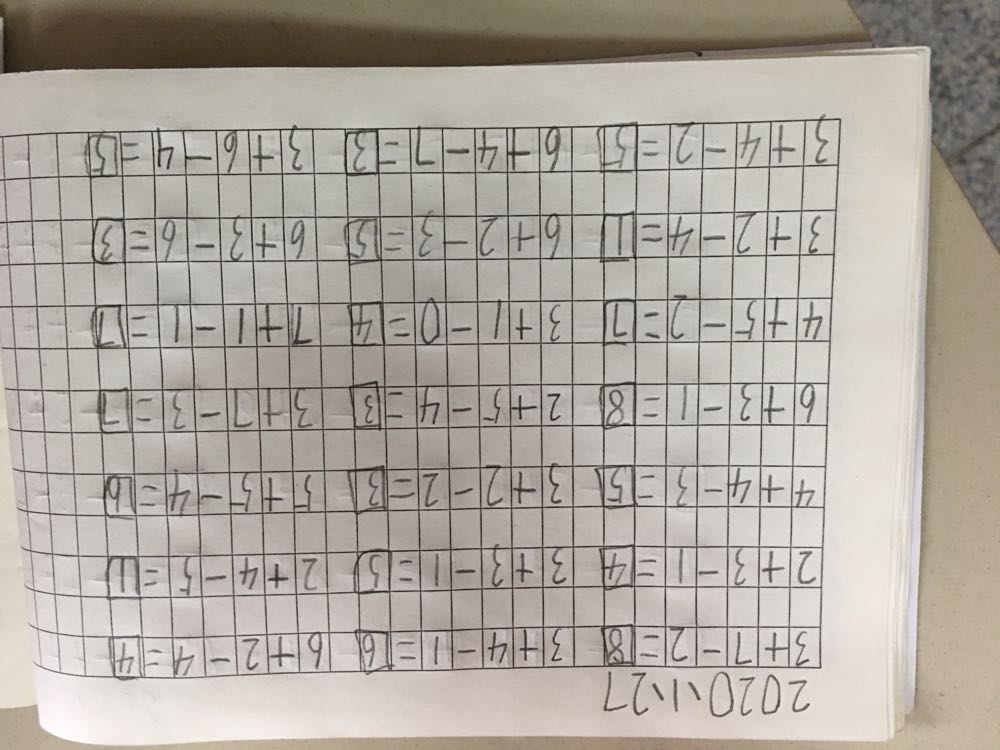 2020、1、27
3+7-2=8 3+4-1=6 6+2-4=4
2+3-1=4 3+3-1=5 2+4-5=1
4+4-3=5 3+2-2=3 5+5-4=6
6+3-1=8 2+5-4=3 3+7-3=7
4+5-2=7 3+1-0=4 7+1-1=7
3+2-4=1 6+2-3=5 6+3-6=3
3+4-2=5 6+4-7=3 3+6-4=5